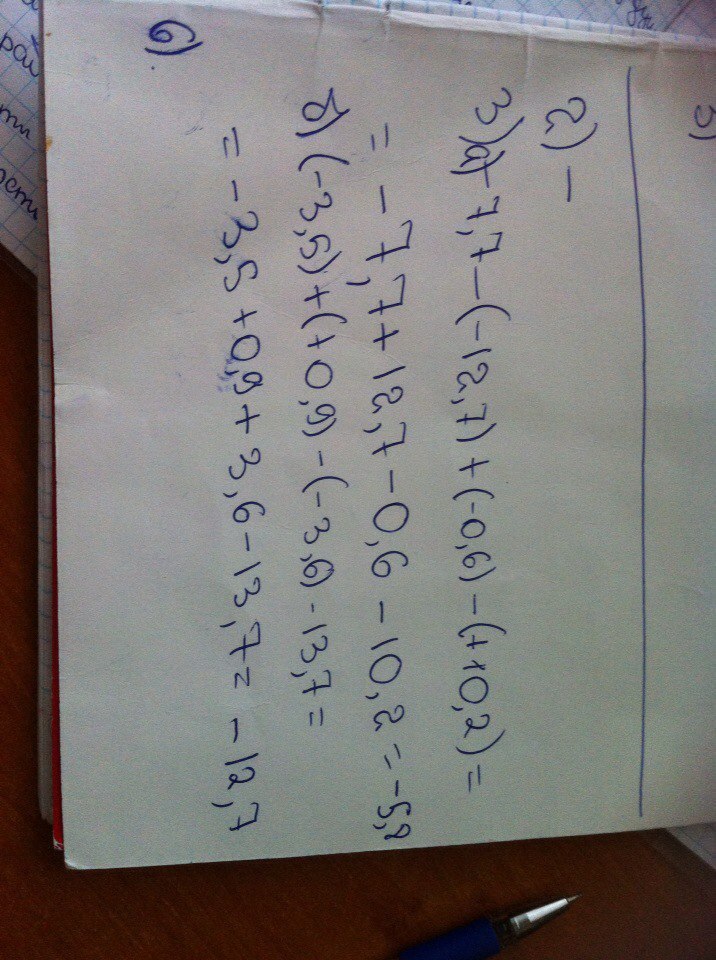 3)
2) –
3) а) -7,7 – (-12,7) + (-0,6) – (+10,2) =
= – 7,7 + 12,7 – 0,6 – 10,2 = -5,8
б) (-3,5) + (+0,9) – (-3,6) - 13,7 =
= – 3,5 + 0,9 + 3,6 – 13,7 = – 12,7
6)